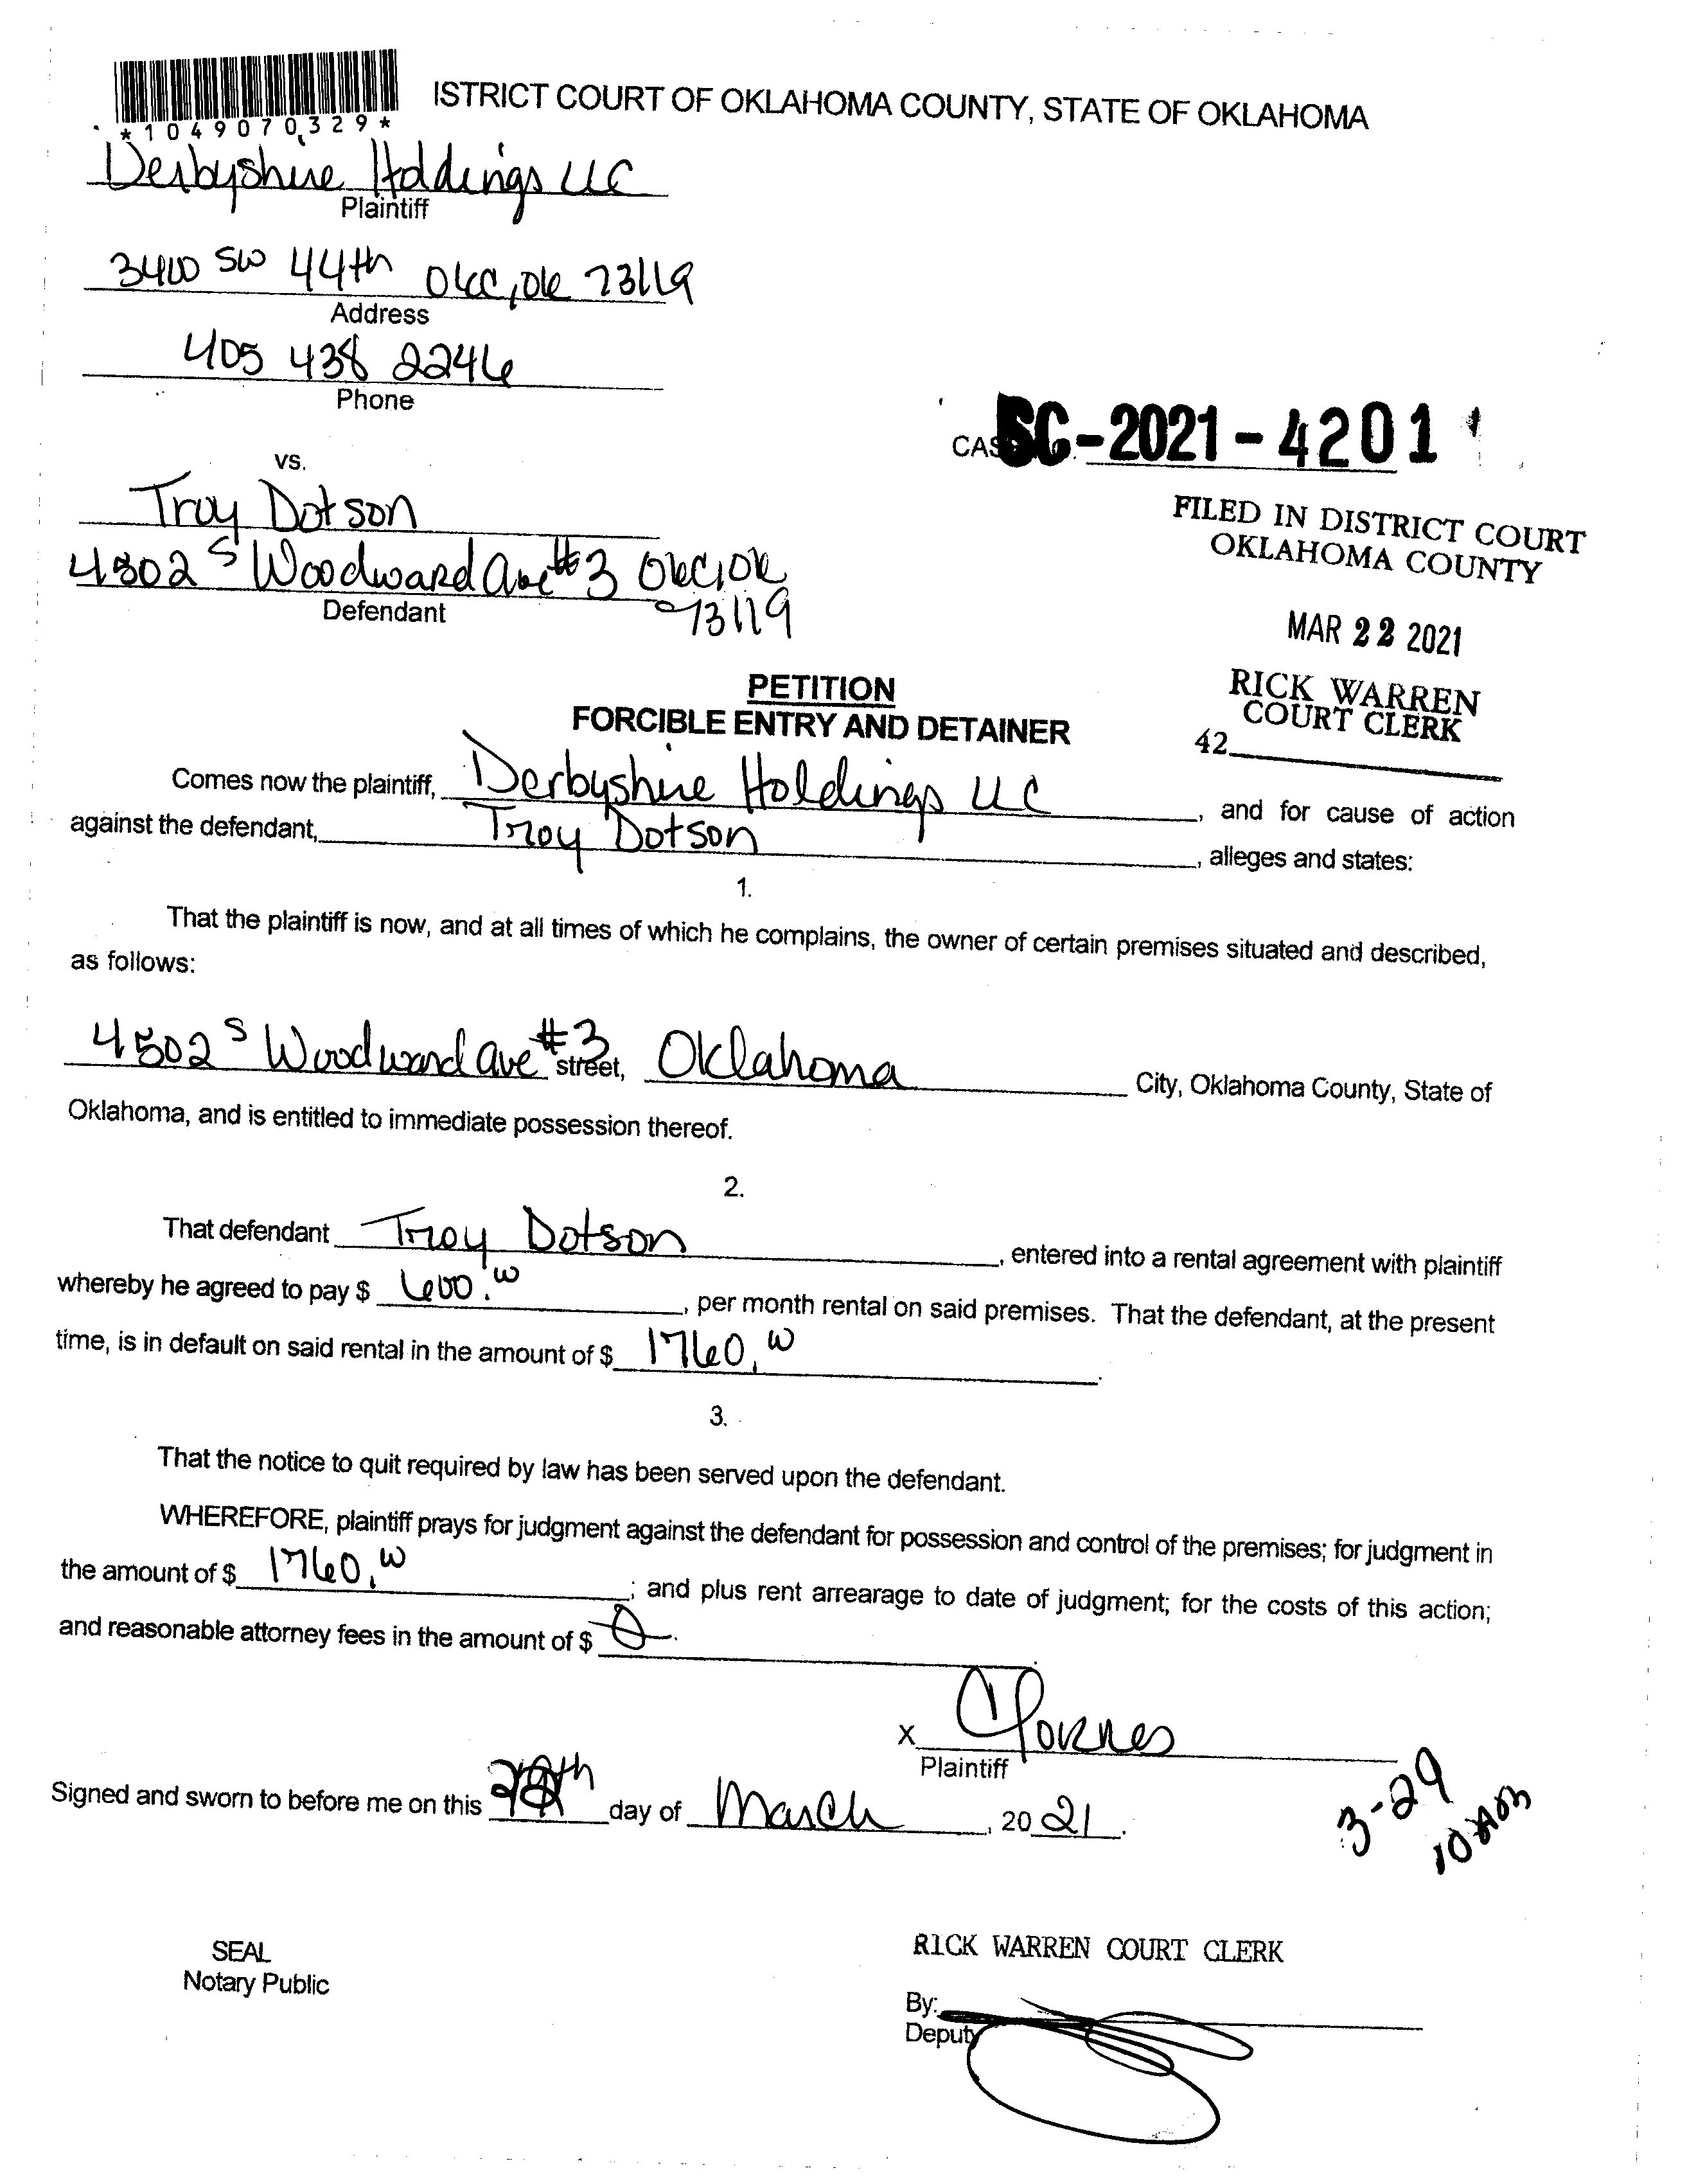 *1049070329*
ISTRICT COURT OF OKLAHOMA COUNTY, STATE OF OKLAHOMA
Derbyshire Holdings LLC
Plaintiff
3400 SW 44th OKC, OK 73119
Address
405 438 2246
Phone
CAS SC-2021-4201
vs.
Troy Dotson
FILED IN DISTRICT COURT
OKLAHOMA COUNTY
4502 S Woodward Ave #3 OKC, OK
73119
Defendant
MAR 22 2021
RICK WARREN
COURT CLERK
42
PETITION
FORCIBLE ENTRY AND DETAINER
Comes now the plaintiff, Derbyshire Holdings LLC, and for cause of action
against the defendant, Troy Dotson, alleges and states:
1.
That the plaintiff is now, and at all times of which he complains, the owner of certain premises situated and described,
as follows:
4502 S Woodward Ave #3 street, Oklahoma City, Oklahoma County, State of
Oklahoma, and is entitled to immediate possession thereof.
2.
That defendant Troy Dotson, entered into a rental agreement with plaintiff
whereby he agreed to pay $ 600.00, per month rental on said premises. That the defendant, at the present
time, is in default on said rental in the amount of $ 1760.00.
3.
That the notice to quit required by law has been served upon the defendant.
WHEREFORE, plaintiff prays for judgment against the defendant for possession and control of the premises; for judgment in
the amount of $ 1760.00; and plus rent arrearage to date of judgment; for the costs of this action;
and reasonable attorney fees in the amount of $ 0.
X
Plaintiff
Signed and sworn to before me on this day of March, 2021.
3-29
SEAL
Notary Public
RICK WARREN COURT CLERK
By:
Deputy